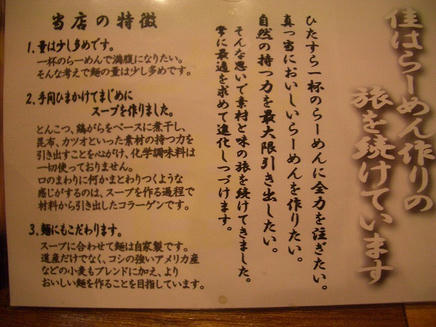 佳はらーめん作りの
旅を続けています
ひたすら一杯のらーめんに全力を注ぎたい。
真っ当においしいらーめんを作りたい。
自然の持つ力を最大限引き出したい。
そんな思いで素材と味の旅を続けてきました。
常に最適を求めて進化しつづけます。
当店の特徴
1.量は少し多めです。
一杯のらーめんで満腹になりたい。
そんな考えで麺の量は少し多めです。
2.手間ひまかけてまじめに
スープを作りました。
とんこつ、鶏がらをベースに煮干し、
昆布、カツオといった素材の持つ力を
引き出すことを心がけ、化学調味料は
一切使っておりません。
口のまわりに何かまとわりつくような
感じがするのは、スープを作る過程で
材料から引き出したコラーゲンです。
3.麺にもこだわります。
スープに合わせて麺は自家製です。
道産だけでなく、コシの強いアメリカ産
などの小麦もブレンドに加え、より
おいしい麺を作ることを目指しています。